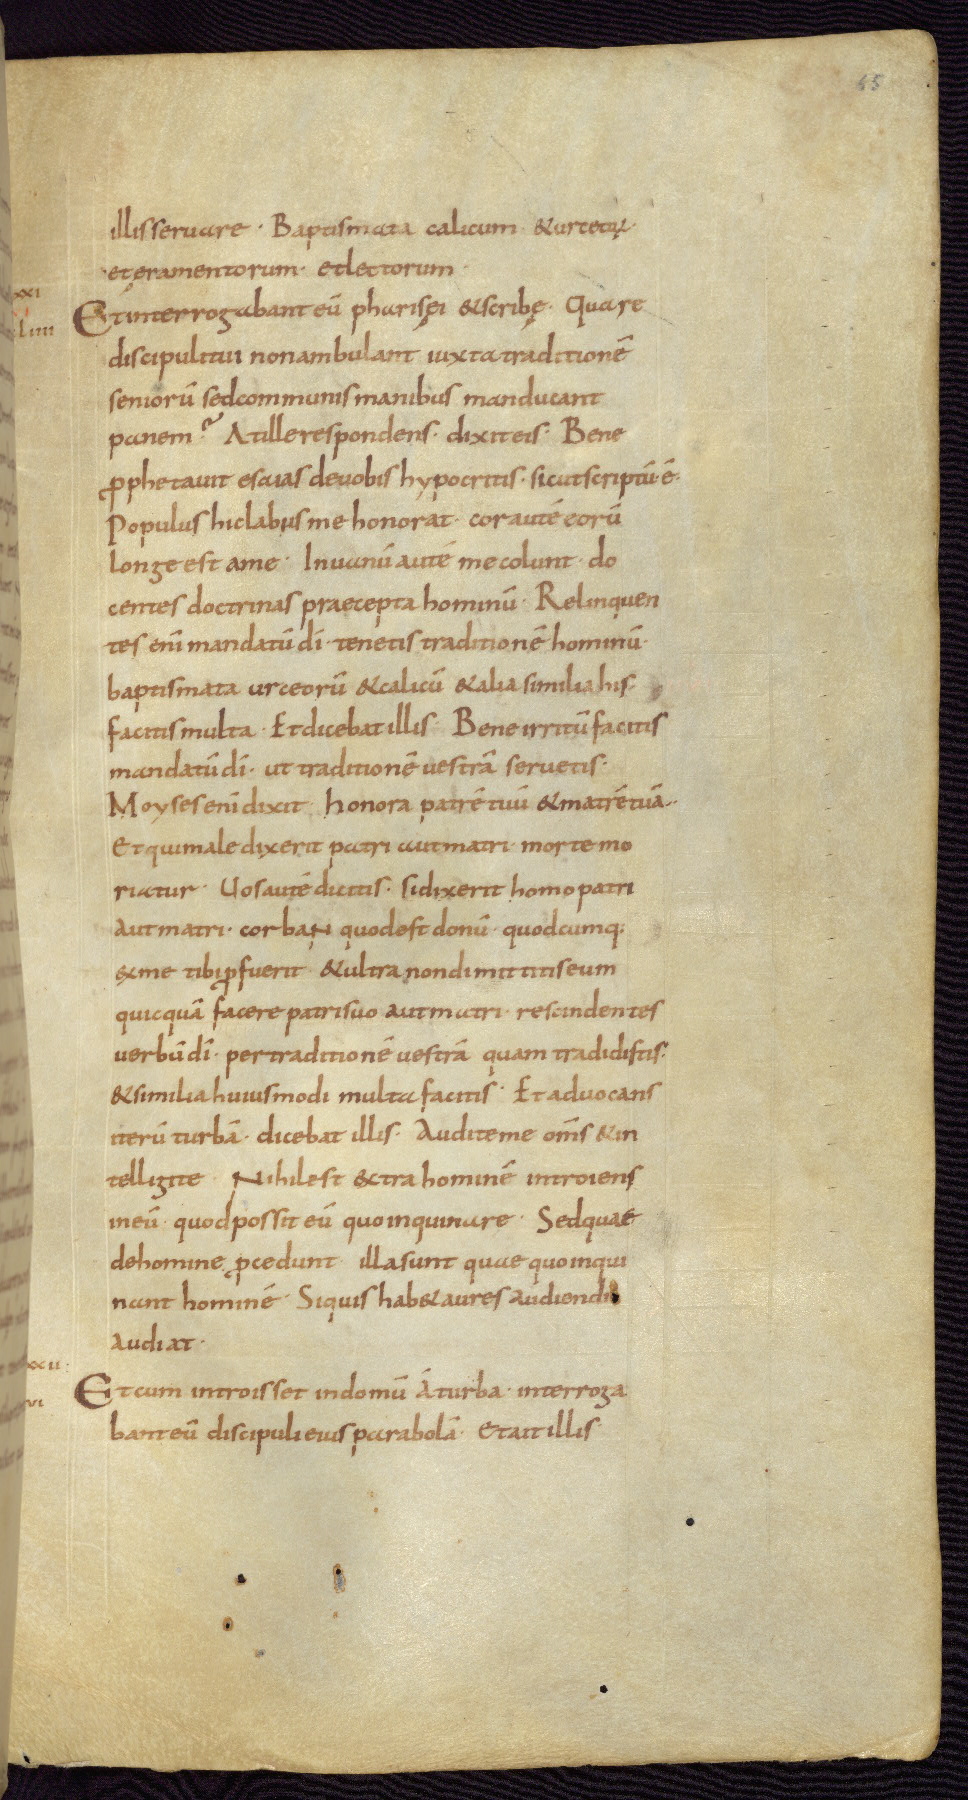 65
illis seruare · Baptismata calicum & urceoꝝ·
et ęramentorum · et lectorum ·
xxi
Et interrogabant eū pharisęi & scribę · Quare
Lιιιι
discipuli tui non ambulant iuxta traditionē
seniorū sed communis manibus manducant
panem? At ille respondens · dixit eis · Bene
ꝓphetauit esaias de uobis hypocritis · sicut scriptū · ē ·
Populus hic labiis me honorat · cor autē eorū
longe est a me · In uanū autē me colunt · do
centes doctrinas praecepta hominū · Relinquen
tes enī mandatū dī · tenetis traditionē hominū ·
baptismata urceorū & calicū & alia similia his ·
facitis multa · Et dicebat illis · Bene irritū facitis
mandatū dī · ut traditionē uestrā seruetis ·
Moyses enī dixit · honora patrē tuū & matrē tuā ·
Et qui maledixerit patri aut matri · morte mo
riatur · Uos autē dicitis · si dixerit homo patri
aut matri · corban quod est donū · quodcumq;
ex me tibi ꝓfuerit & ultra non dimittitis eum
quicquā facere patri suo aut matri · rescindentes
uerbū dī · per traditionē uestrā quam tradidistis ·
& similia huiusmodi multa facitis · Et aduocans
iterū turbā · dicebat illis · Audite me om̄s & in
telligite · Nihil est extra hominē introiens
in eū · quod possit eū quoinquinare · Sed quae
de homine ꝓcedunt illa sunt quae quoinqui
nant hominē · Si quis hab& aures audiendi
audiat ·
xxii ·
Et cum introisset in domū á turba · interroga
vi
bant eū discipuli eius parabolā · Et ait illis